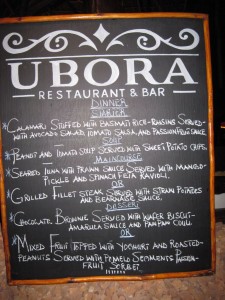 UBORA
RESTAURANT & BAR
DINNER
STARTER
*CALAMARI STUFFED WITH BASMATI RICE-RAISINS SERVED-
WITH AVOCADO SALAD, TOMATO SALSA, AND PASSIONFRUIT SAUCE
SOUP
*PEANUT AND TOMATO SOUP SERVED WITH SWEET POTATO CRIPS.
MAINCOURSE
*SEARED TUNA WITH PRAWN SAUCE SERVED WITH MANGO-
PICKLE AND SPINACH FETA RAVIOLI.
OR
*GRILLED FILLET STEAK SERVED WITH STRAW POTATOES
AND BEARNAISE SAUCE.
DESSERT
*CHOCOLATE BROWNIE SERVED WITH WAFER BISCUIT-
AMARULA SAUCE AND PAWPAW COULI.
OR
*MIXED FRUIT TOPPED WITH YOGHURT AND ROASTED-
PEANUTS SERVED WITH POMELO SEGMENTS PASSION-
FRUIT SORBET